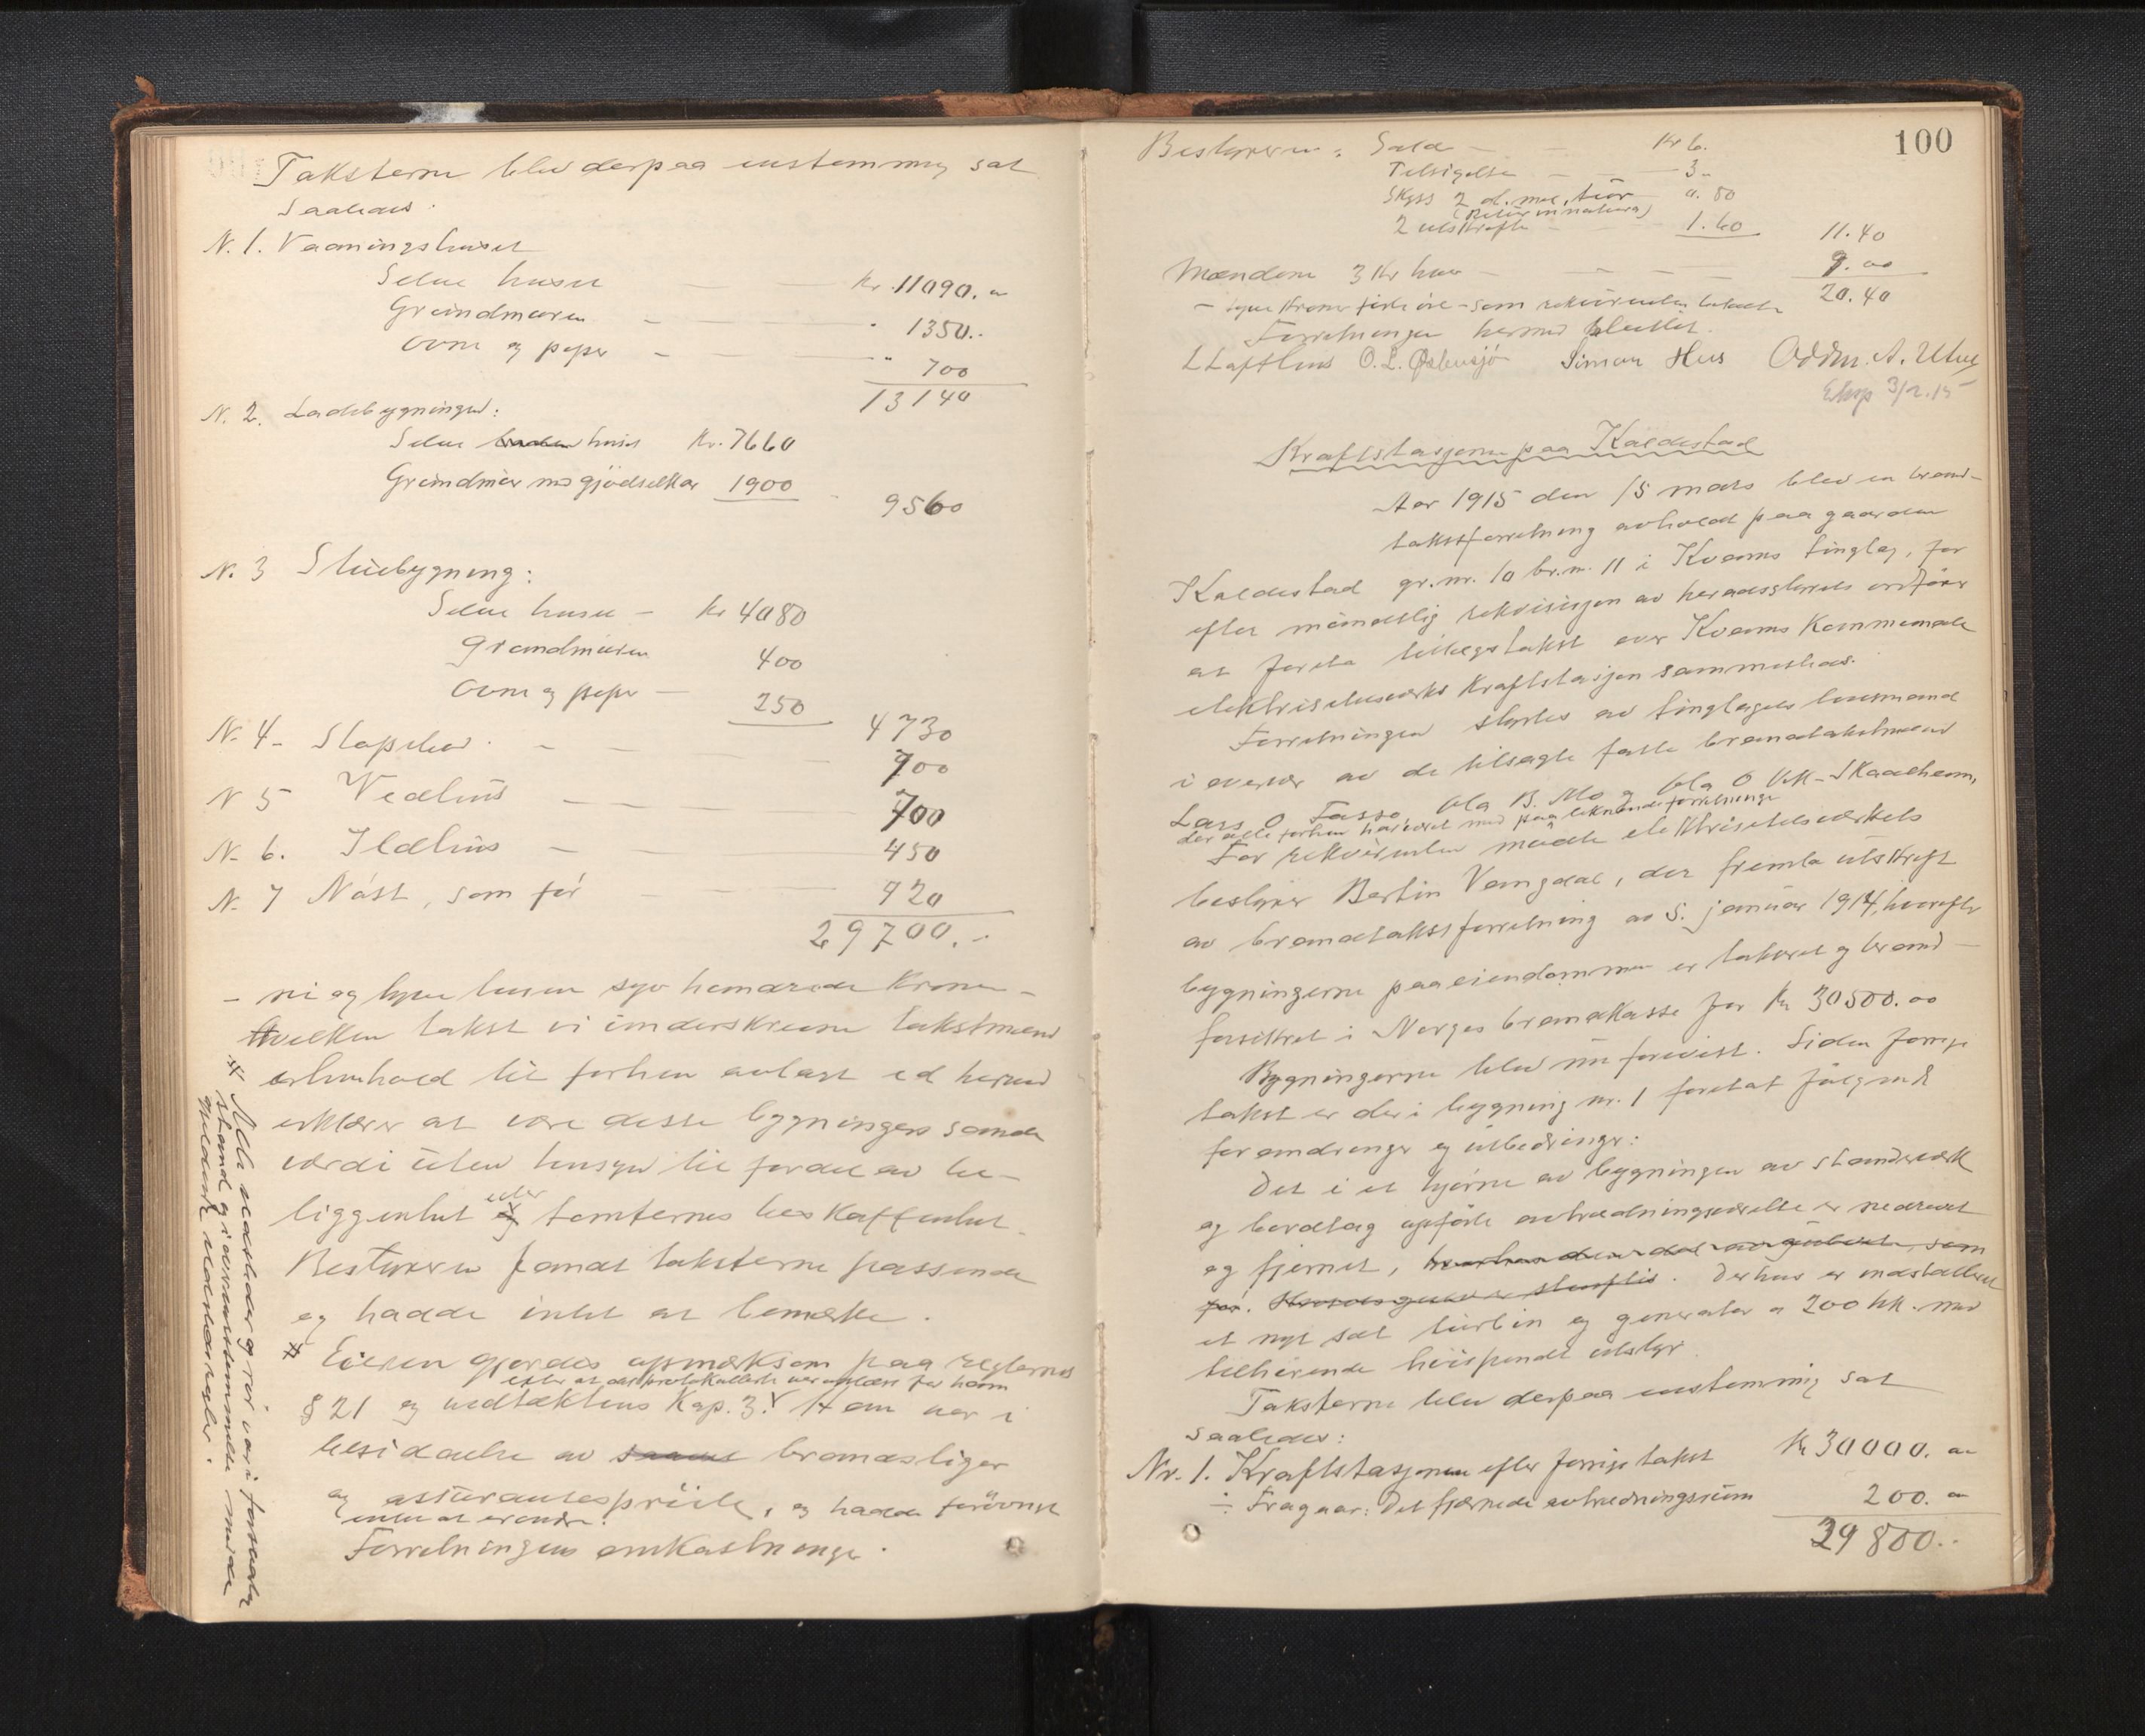 Taksterne blev derpaa enstemmig sat
saaledes:
N. 1. Vaaningshuset
Selve huset — — Kr. 11090.00
Grundmuren — — " 1350.-
Ovne og peper — — " 700
13140
N. 2. Ladebygningen:
Selve huset Kr. 7660
Grundmur med gjødselkar 1900
9560
N. 3 Stuebygning:
Selve huset — Kr 4080
Grundmuren 400
Ovne og peper — 250
4730
N. 4 - Stapelen — — 900
N 5 Vedhus — — 700
N. 6. Ildhus — — 450
N. 7 Nøst, som før — — 920
29700.-
- ni og tyve tusen syv hundrede kroner -
hvilken takst vi underskrevne takstmænd
i henhold til forhen avlagt ed herved
erklærer at være disse bygningers sande
værdi uten hensyn til fordel av be-
liggenhet eller tomternes beskaffenhet.
Bestyreren fandt taksterne passende
og hadde intet at bemerke.
※ Eieren gjordes opmerksom paa reglernes
efter at det protokollerte var oplæst for ham
§ 21 og vedtektens Kap. 3. Han var i
besiddelse av brandstiger
og assuransesprøite, og hadde forøvrigt
intet at erindre.
Forretningens omkostninger.
※ Alle ildsteder og rør var i forsvarlig
stand og i overensstemmelse med de
gjeldende
100
Bestyreren: Sald — — Kr 6.
Tilsigelse — — 3-
Skyss 2 d. mil, tur 0.80
(Retur in natura)
2 utskrifter — 1.60 11.40
Mændene 3 Kr hver — — — 9.00
20.40
- tyve kroner firti øre - som rekvirenten betalte
Forretningen hermed sluttet.
L Lofthus O. L. Østensjø Simon Hus Oddm. A. Utne
Eksp 3/2.15
Kraftstasjonen paa Kaldestad
Aar 1915 den 15 mars blev en brand-
takstforretning avholdt paa gaarden
Kaldestad gr.nr. 10 br.nr. 11 i Kvams tinglag, for
efter mundtlig rekvisisjon av heradsstyrets ordfører
at foreta tillægstakst over Kvams Kommunale
elektrisitetsverks Kraftstasjon sammesteds.
Forretningen styrtes av tinglagets lensmand
i overvær av de tilsagte faste brandtakstmænd
Lars O Tasso, Ola B. Mo og Ola O Vik-Skaadheim,
der alle forhen har været med paa liknende forretninger
For rekvirenten møtte elektrisitetsverkets
bestyrer Bertin Vangdal, der fremla utskrift
av brandtakstforretning av 5. januar 1914, hvorefter
bygningerne paa eiendommen er takseret og brand-
forsikret i Norges brandkasse for Kr 30500.00
Bygningerne blev nu forevist. Siden forrige
takst er der i bygning nr. 1 foretat følgende
forandringer og utbedringer:
Det i et hjørne av bygningen av standverk
og bordlag opførte avtrædningsværelse er nedrevet
og fjernet, som
før. Derhos er indstalleret
et nyt sæt turbin og generator a 200 hk. med
tilhørende høispendt utstyr.
Taksterne blev derpaa enstemmig sat
saaledes:
Nr. 1. Kraftstasjonen efter forrige takst Kr 30000.00
÷ Fragaar: Det fjærnede avtrædningsrum 200.00
29800.-